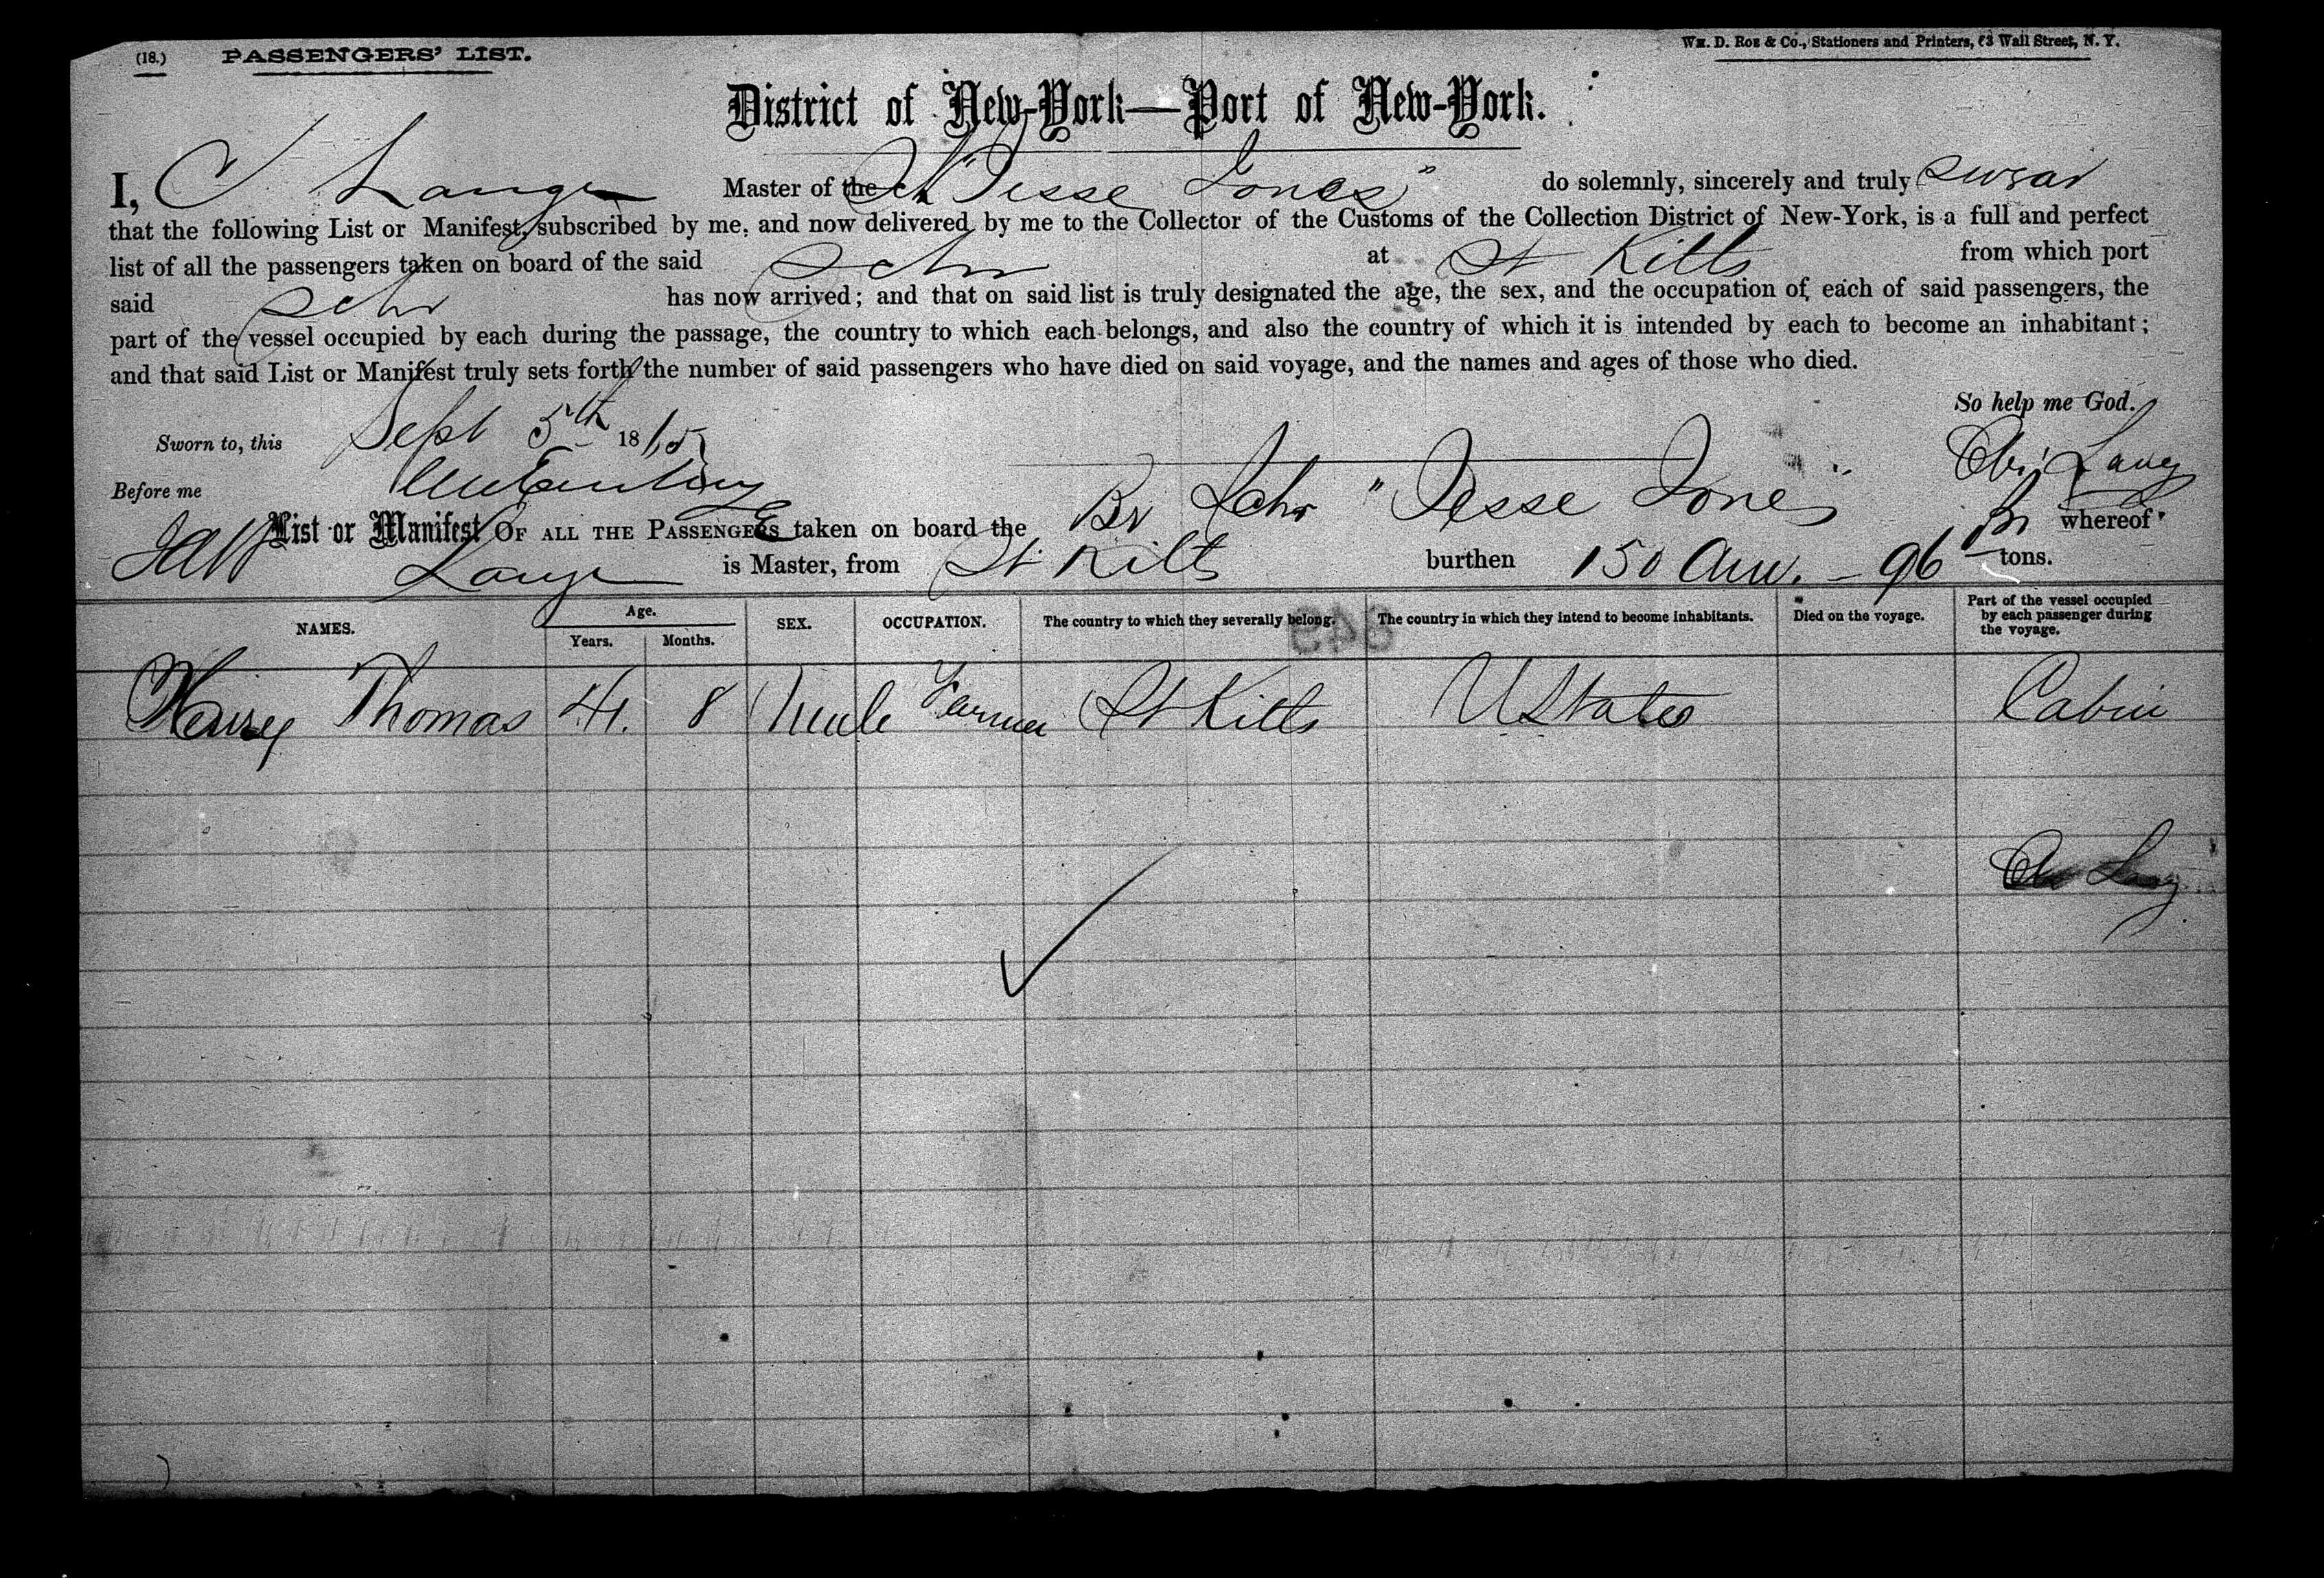 (18.) PASSENGERS' LIST. Wm. D. Roe & Co., Stationers and Printers, 63 Wall Street, N. Y.
District of New-York—Port of New-York.
I, C Lange Master of the Sch "Jesse Jones" do solemnly, sincerely and truly swear
that the following List or Manifest, subscribed by me, and now delivered by me to the Collector of the Customs of the Collection District of New-York, is a full and perfect
list of all the passengers taken on board of the said Schr at St Kitts from which port
said Schr has now arrived; and that on said list is truly designated the age, the sex, and the occupation of each of said passengers, the
part of the vessel occupied by each during the passage, the country to which each belongs, and also the country of which it is intended by each to become an inhabitant;
and that said List or Manifest truly sets forth the number of said passengers who have died on said voyage, and the names and ages of those who died.
So help me God.
Sworn to, this Sept 5th 1865
Before me
List or Manifest OF ALL THE PASSENGERS taken on board the Br Schr "Jesse Jones" whereof
Lange is Master, from St Kitts burthen 150 96 tons.
NAMES. Age. Years. Months. SEX. OCCUPATION. The country to which they severally belong. The country in which they intend to become inhabitants. Died on the voyage. Part of the vessel occupied by each passenger during the voyage.
Thomas 41. 8 Male Farmer St Kitts U States Cabin